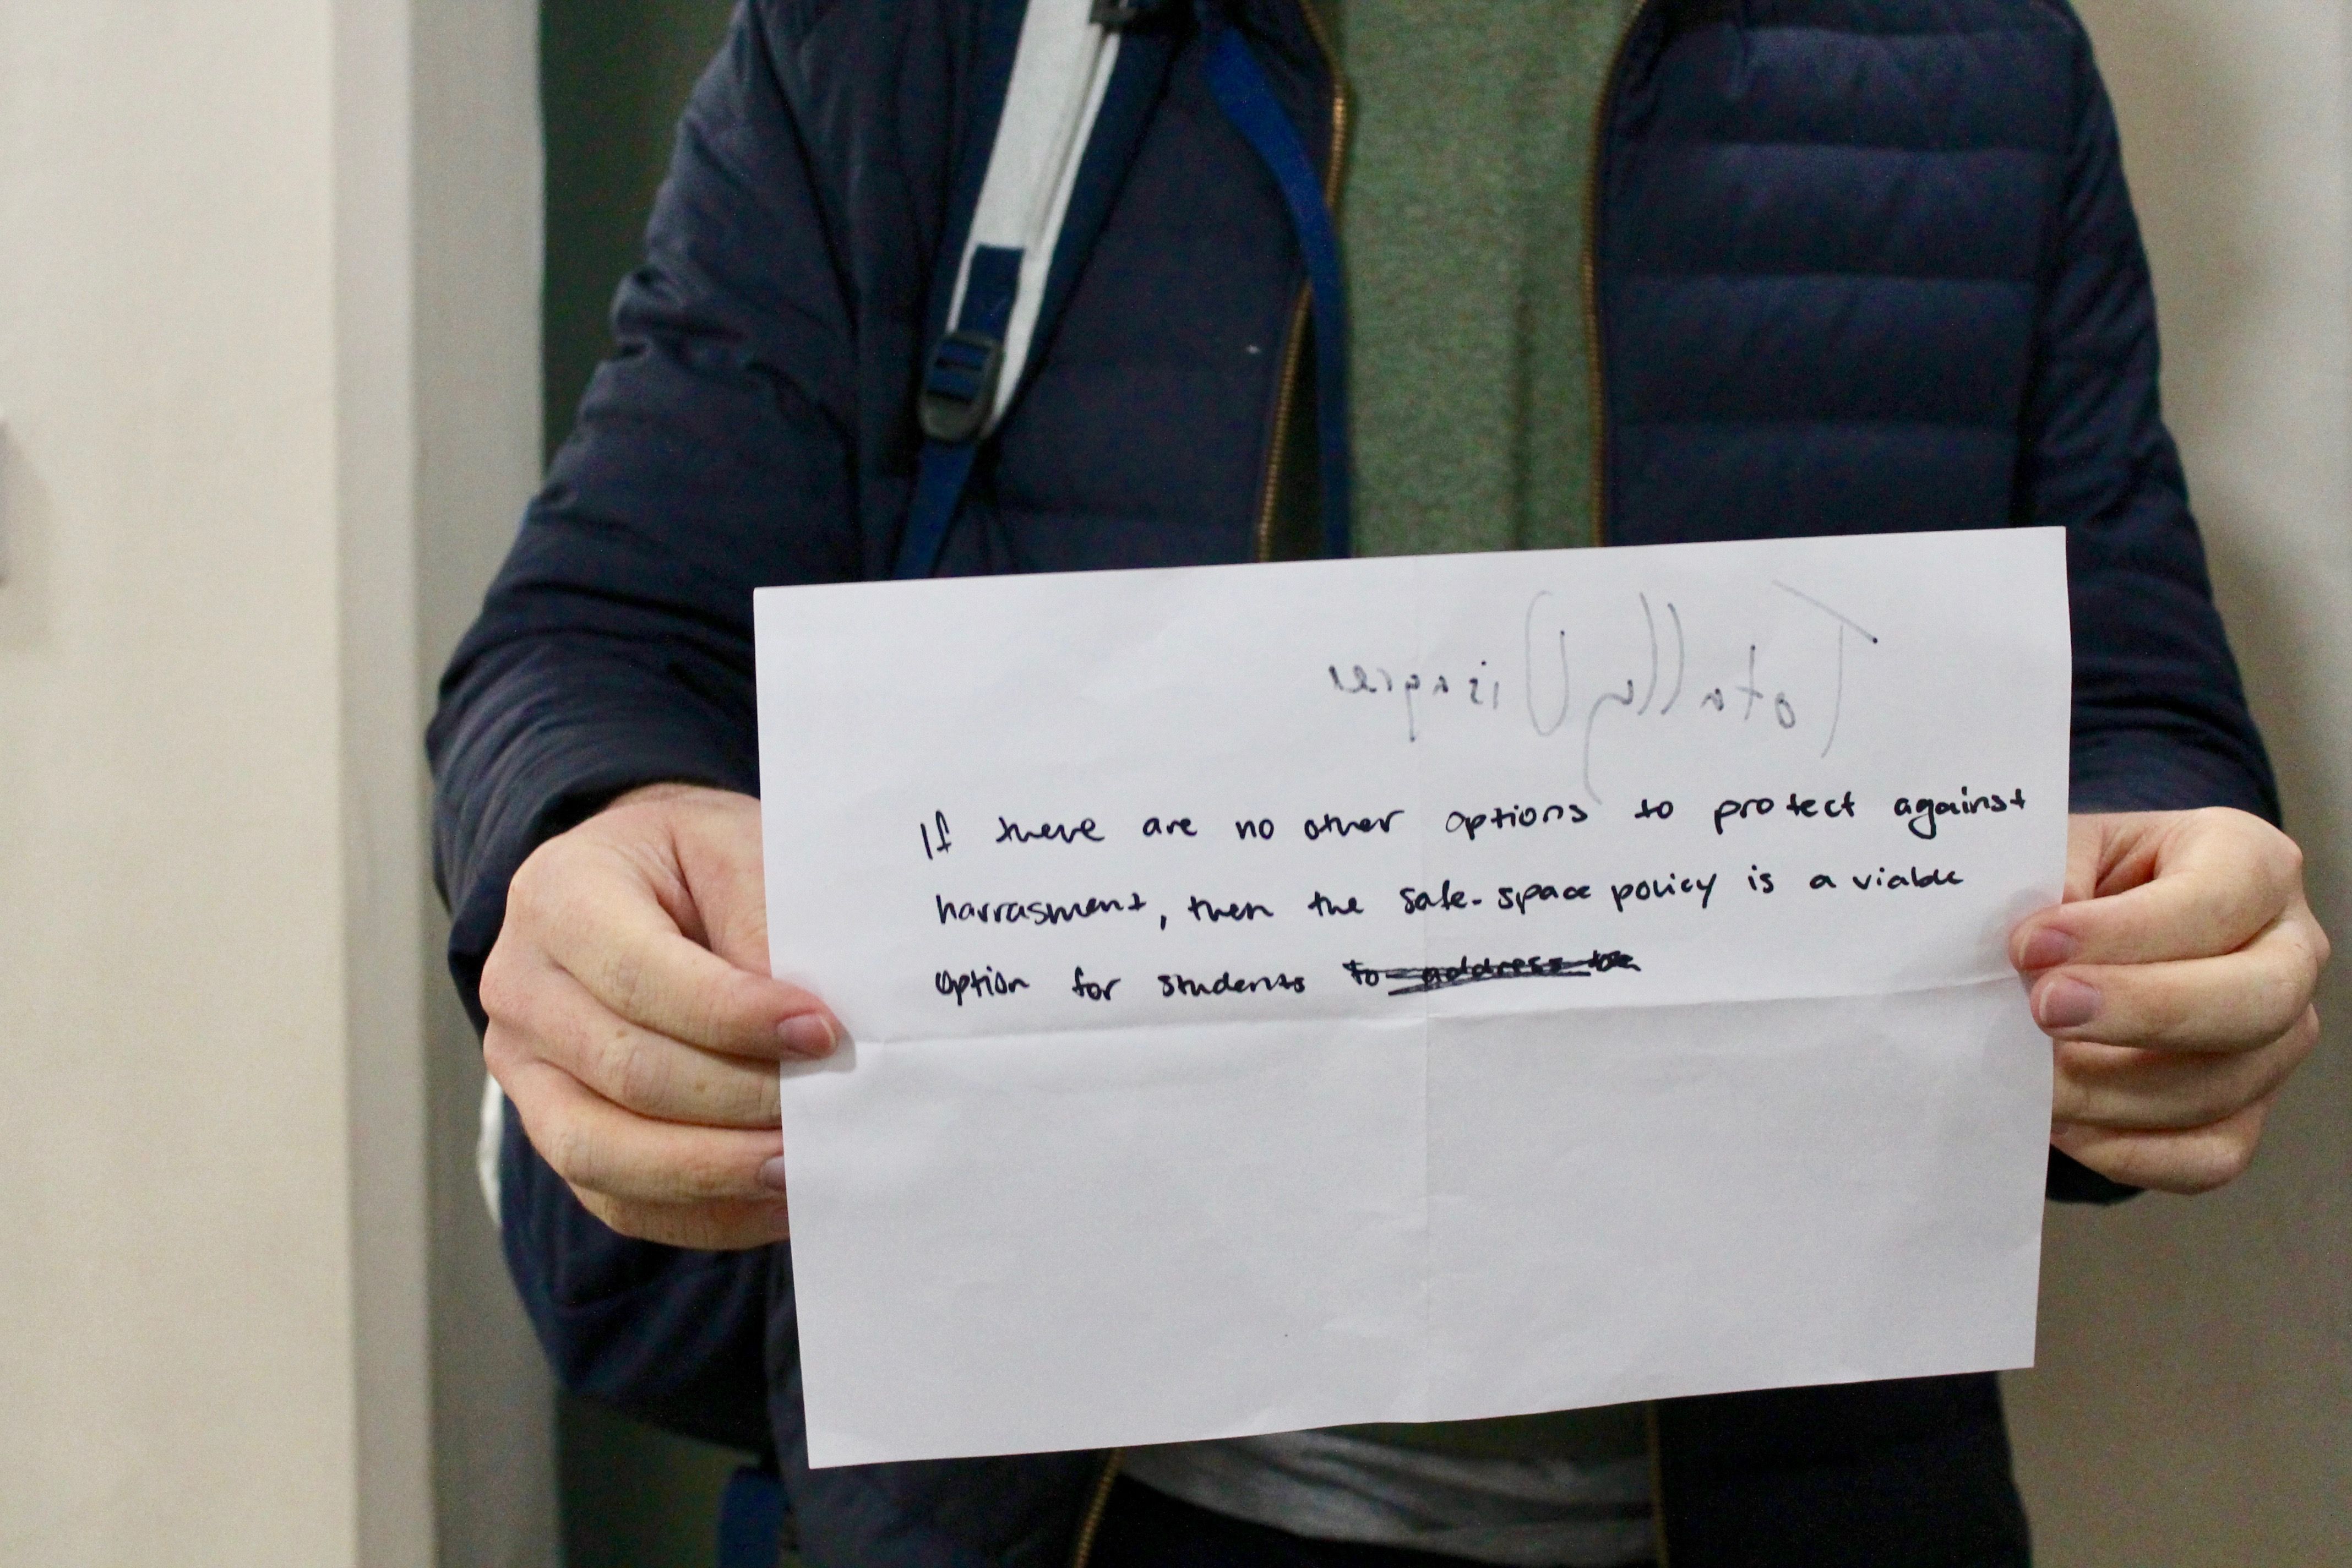 Totally Disagree
If there are no other options to protect against
harrasment, then the safe-space policy is a viable
option for students to address the